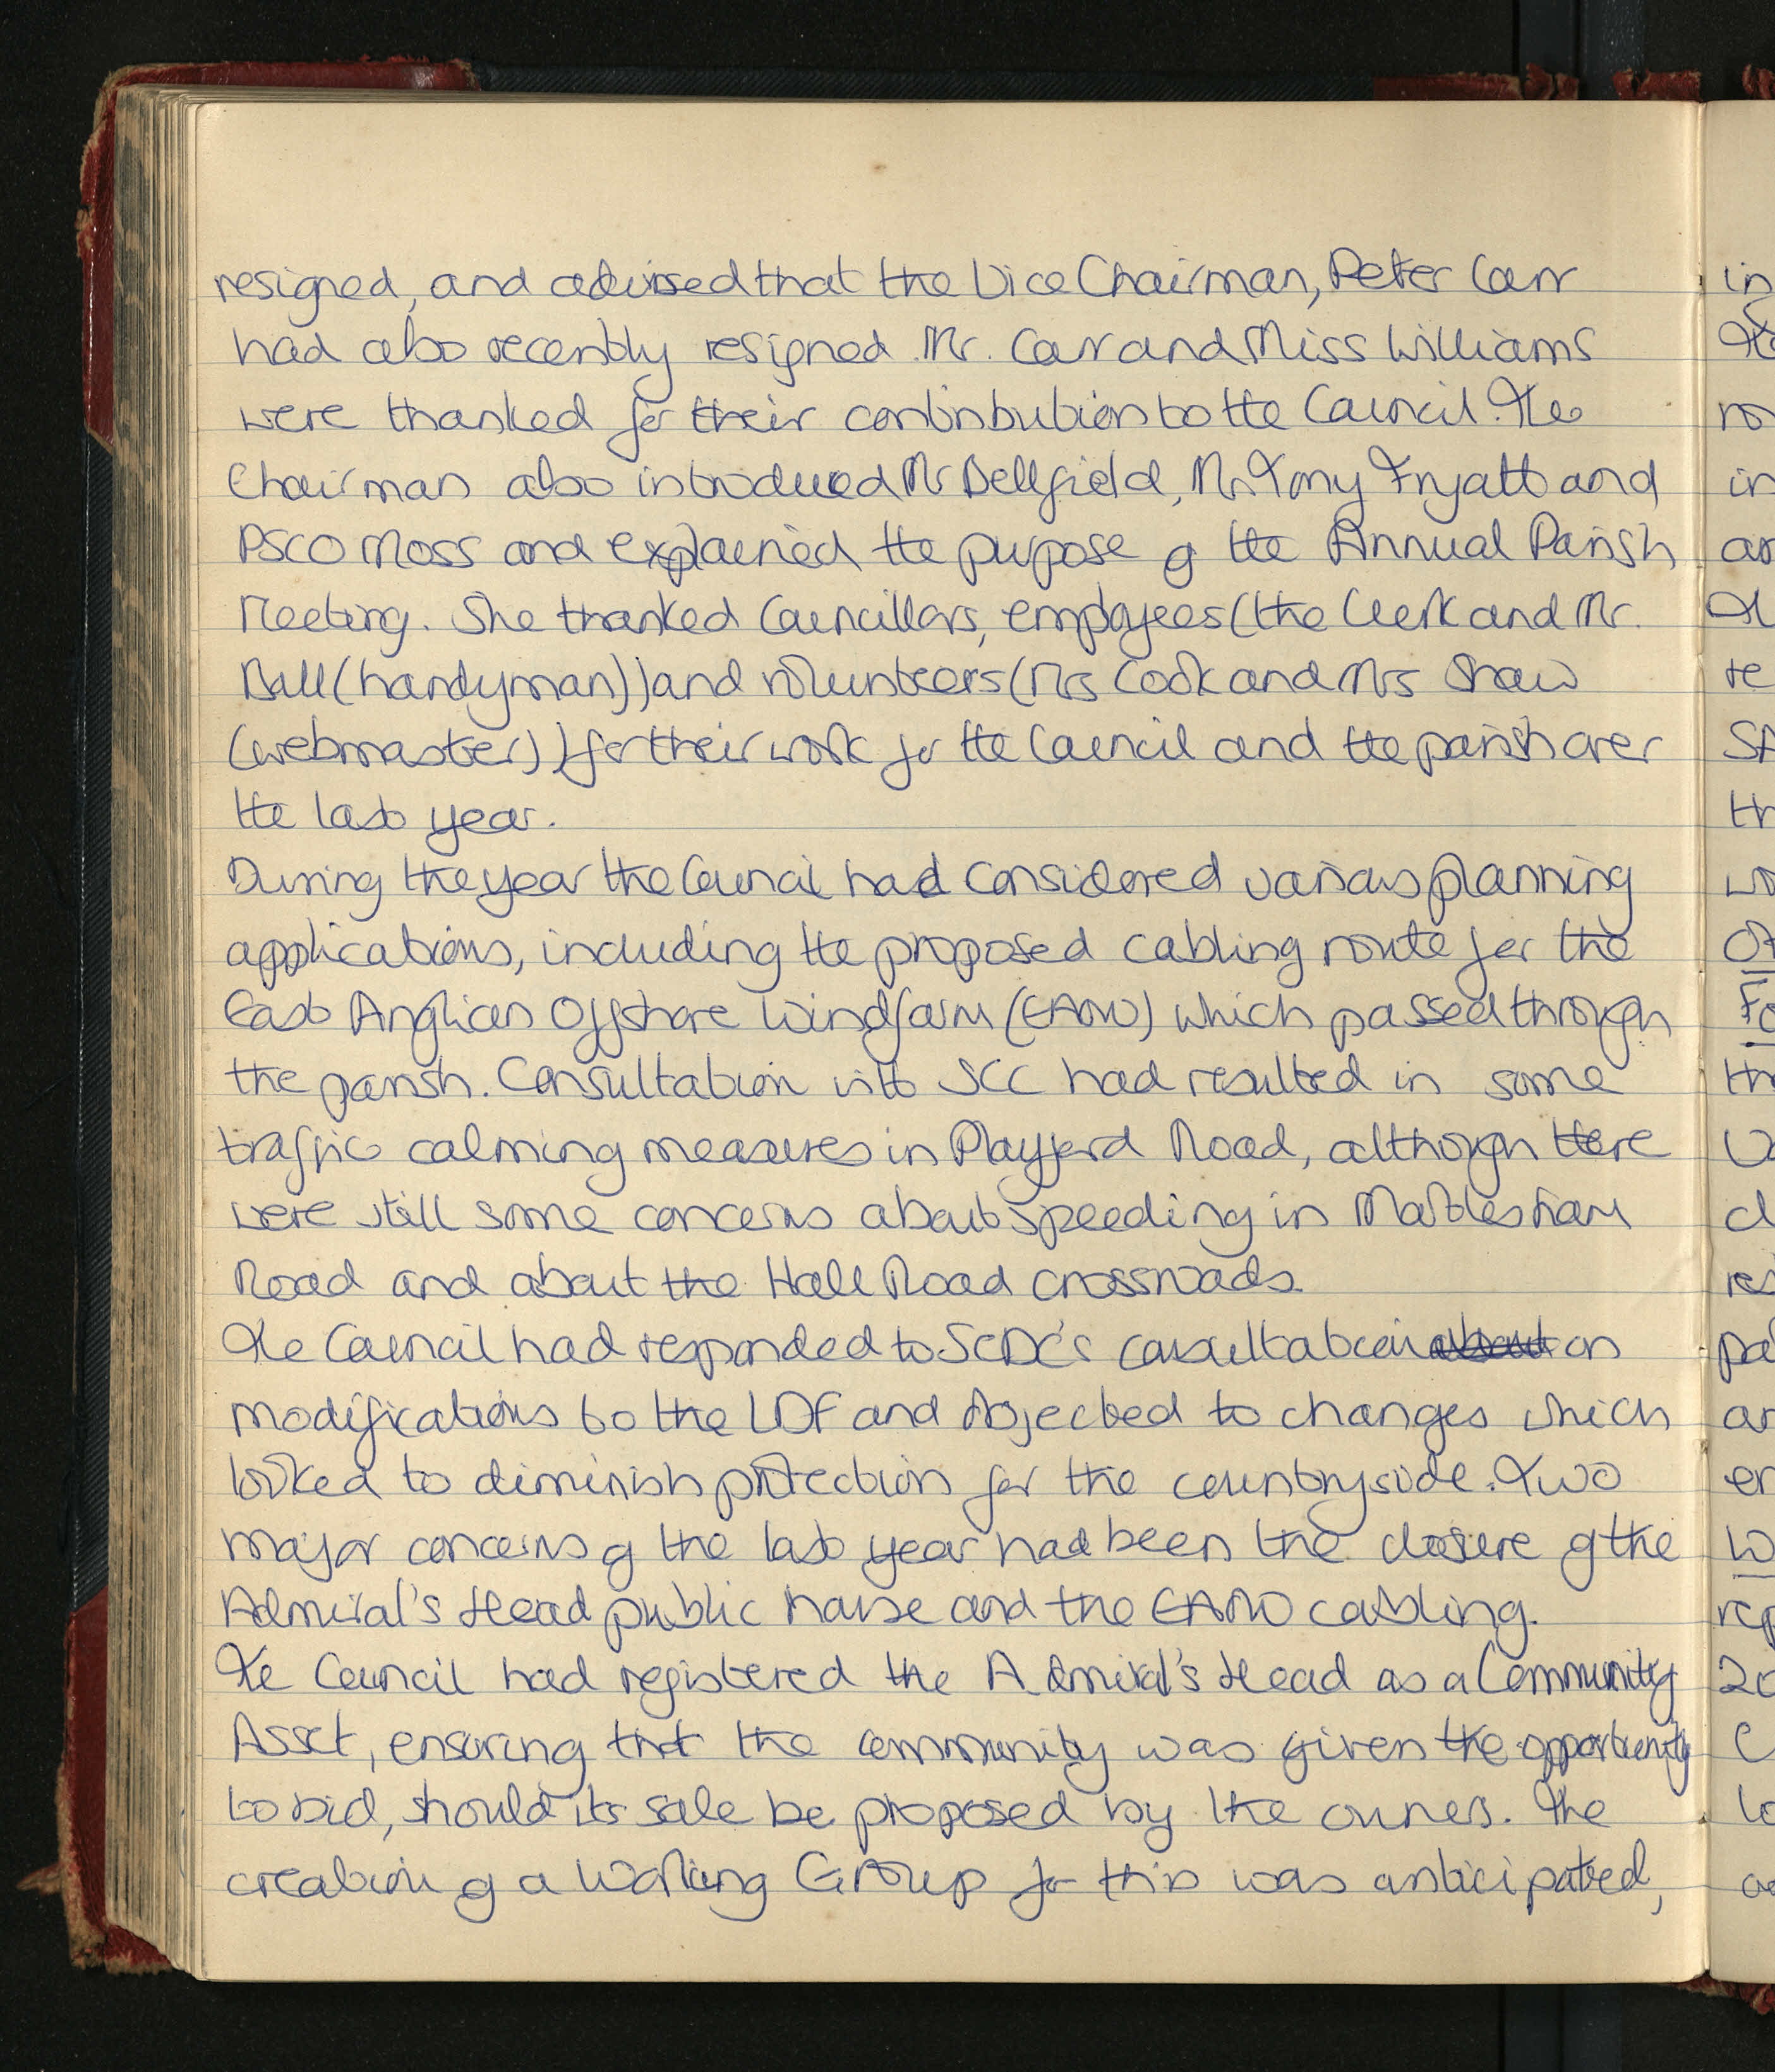 resigned, and advised that the Vice Chairman, Peter Carr
had also recently resigned. Mr. Carr and Miss Williams
were thanked for their contribution to the Council. The
Chairman also introduced Mr Bellfield, Mr Tony Fryatt and
PSCO Moss and explained the purpose of the Annual Parish
Meeting. She thanked Councillors, employees (the Clerk and Mr.
Ball (handyman)) and volunteers (Mrs Cook and Mrs Shaw
(webmaster)) for their work for the Council and the parish over
the last year.
During the year the Council had considered various planning
applications, including the proposed cabling route for the
East Anglian Offshore Windfarm (EAOW) which passed through
the parish. Consultation with SCC had resulted in some
traffic calming measures in Playford Road, although there
were still some concerns about speeding in Martlesham
Road and about the Hall Road crossroads.
The Council had responded to SCDC's consultation about on
modifications to the LDF and objected to changes which
looked to diminish protection for the countryside. Two
major concerns of the last year had been the closure of the
Admiral's Head public house and the EAOW cabling.
The Council had registered the Admiral's Head as a Community
Asset, ensuring that the community was given the opportunity
to bid, should its sale be proposed by the owners. The
creation of a Working Group for this was anticipated,